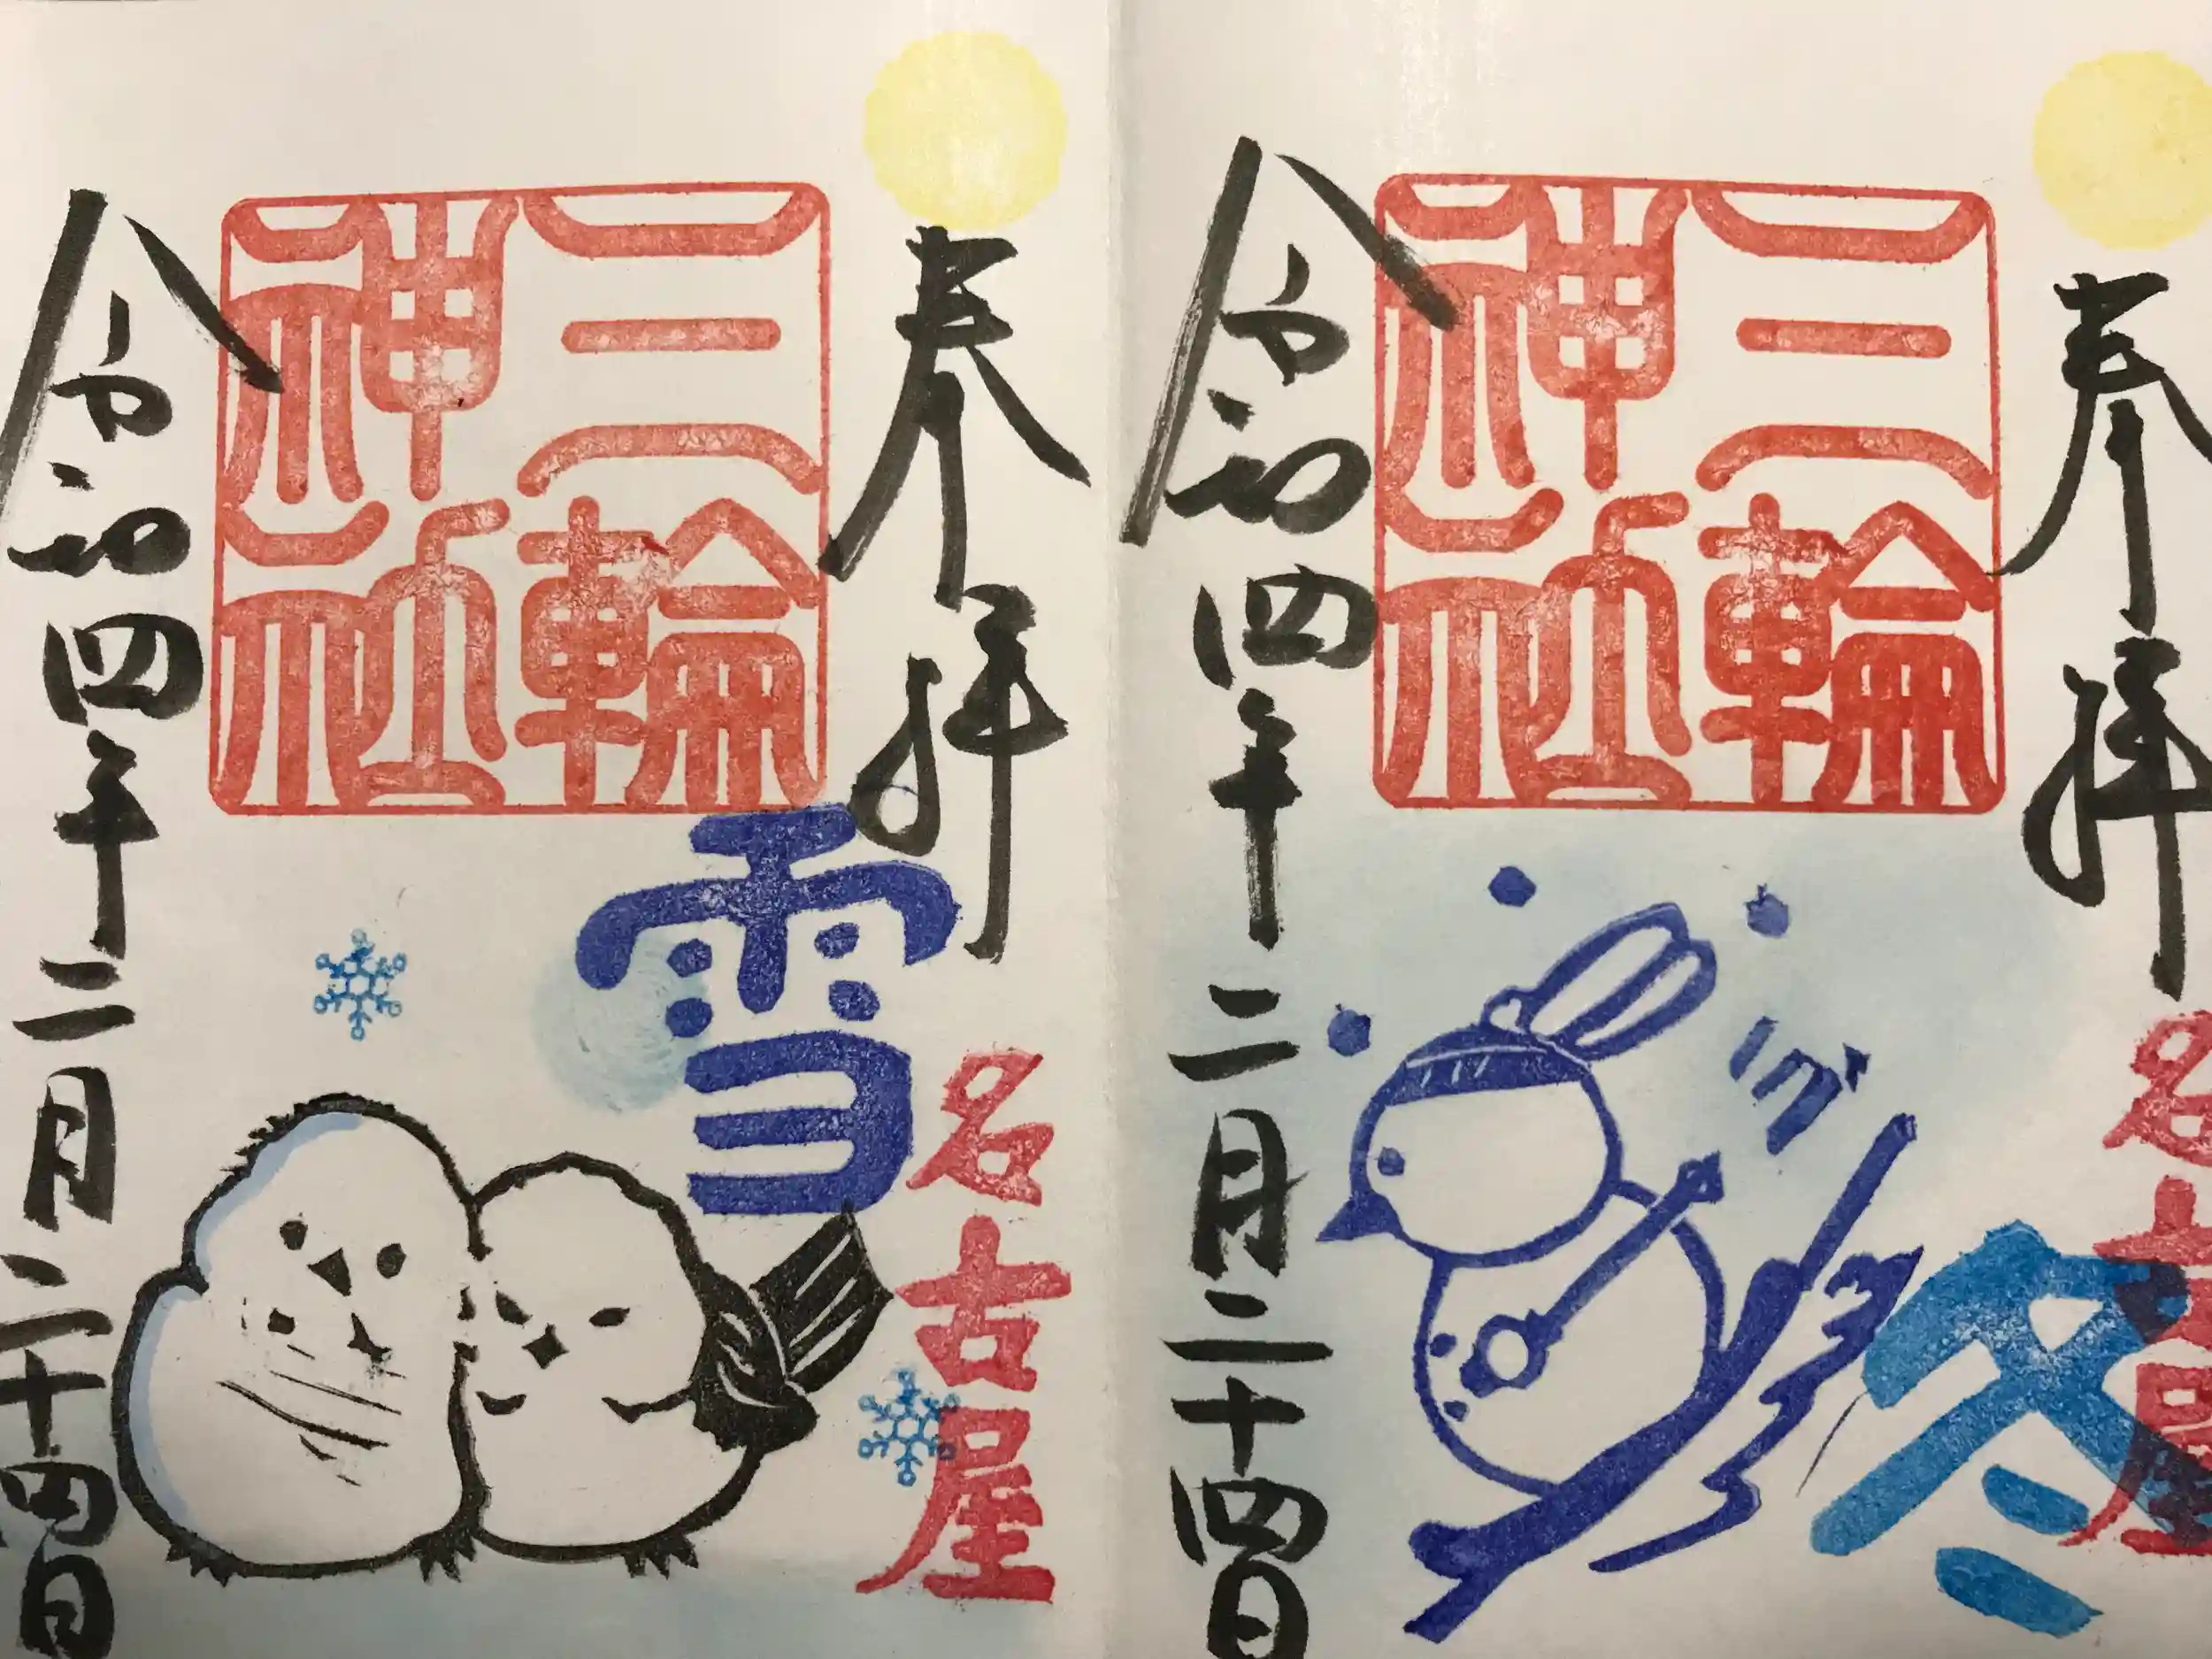 奉拝
三輪
神社
冬
名古屋
令和四年二月二十四日
奉拝
三輪
神社
雪
名古屋
令和四年二月二十四日